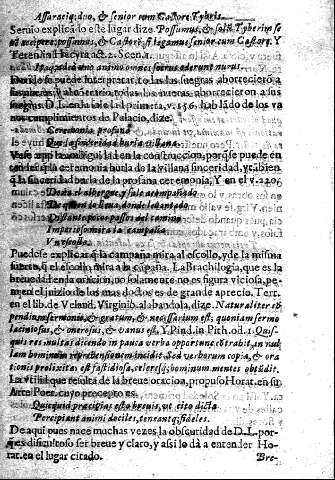 Assaraciq; duo, & senior cum Castore Tybris.
Seruio explicādo este lugar dize. Possumus, & solū Tyberim se
ni accipere, possumus, & Castorē, si legamus senior cum Castore. Y
Terencio in Hecyra act. 2. Scen. 1.
Itaq; adeò uno animo omnes socrus oderunt nurus.
Donde se puede interpretar, ò todas las suegras aborrecierō a
sus nueras, y al reues, todas las nueras aborrecieron a sus
suegras. D. L. en la Isle 1. l primera, v. 136. hablādo de los va
nos cumplimientos de Palacio, dize,
Ceremonia profana
Que la sinceridad burla villana.
Vese aqui la ambiguidad en la construccion, porq̄ se puede en
tender q̄ la ceremonia burla de la villana sinceridad, y tābien
q̄ la sinceridad burla de la profana ceremonia; Y en el v. 220.
Dexa el albergue, y sale acompañado
De quien lo lleua, donde leuantado
Distante pocos passos del camino
Imperioso mira la campaña
Vn escollo.
Puedese explicar q̄ la campana mira al escollo, y de la misma
suerte, q̄ el escollo mira a la cāpaña. La Brachilogia, que es la
breuedad en la música, no solamente no es figura viciosa, pe-
ro en el juizio de los mas doctos es de grande aprecio. Tert.
en el lib. de Veland. Virginib. alabandola, dize. Naturaliter cō
pendium sermonis, & gratum, & necessarium est, quoniam sermo
laciniosus, & onerosus, & vanus est. Y Pind. in Pith. od. 1. Quis-
quis res multas dicendo in pauca verba opportunè cōtrabit, in nul
lam hominum reprehensionem incidit. Sed verborum copia, & ora
tionis prolixitas est fastidiosa, celeresq; hominum mentes obtūdit.
La vtilidad que resulta de la breue oracion, propuso Horat. en su
Arte Poet. cuyo precepto es.
Quicquid præcipies esto breuis, ut cito dicta
Percipiant animi dociles, teneantq; fideles.
De aqui pues nace muchas vezes la obscuridad de D. L. por-
que es dificultoso ser breue y claro, y assi lo dà a entender Ho-
rat. en el lugar citado.
Bre-